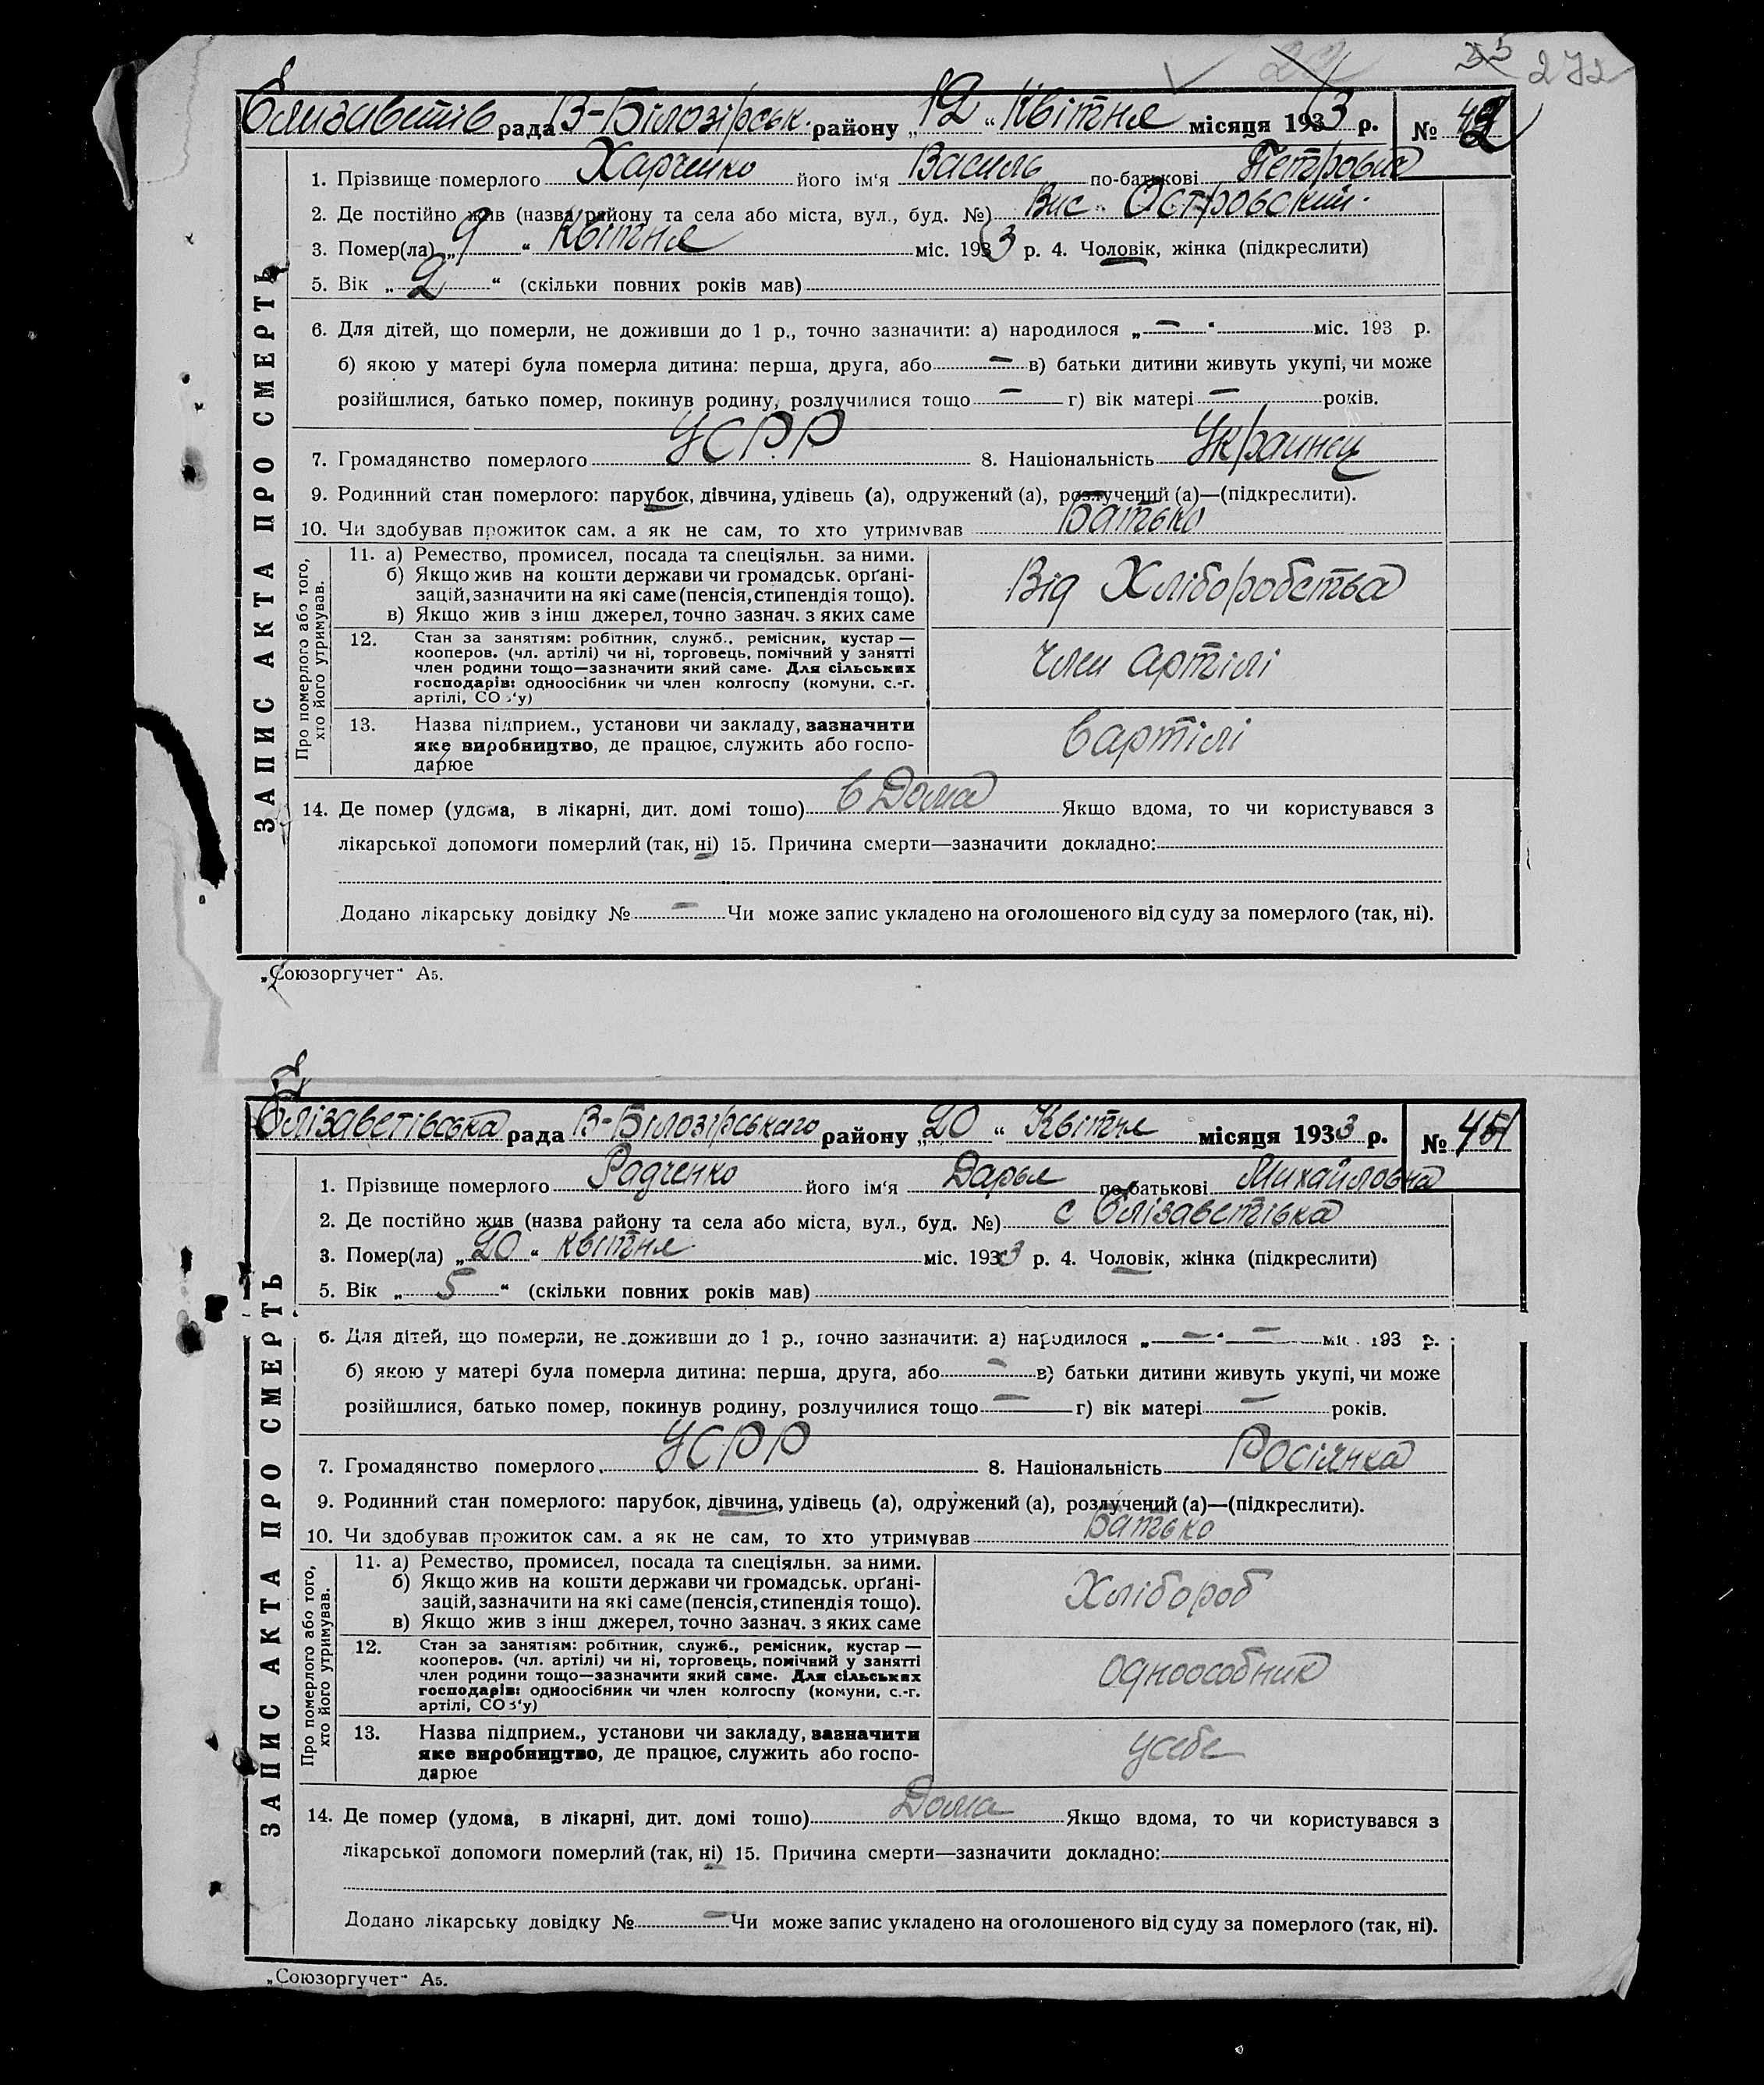 272
Єлизаветів рада В-Білозірськ. району „12“ Квітня місяця 1933 р. №
1. Прізвище померлого Харченко його ім'я Василь по-батькові Петрович
2. Де постійно жив (назва району та села або міста, вул., буд. №) Вис. Островский.
3. Помер(ла) „9“ Квітня міс. 1933 р. 4. Чоловік, жінка (підкреслити)
5. Вік „2“ (скільки повних років мав)
6. Для дітей, що померли, не доживши до 1 р., точно зазначити: а) народилося „—“ міс. 193 р.
б) якою у матері була померла дитина: перша, друга, або — в) батьки дитини живуть укупі, чи може
розійшлися, батько помер, покинув родину, розлучилися тощо — г) вік матері — років.
7. Громадянство померлого УСРР 8. Національність Украинец
9. Родинний стан померлого: парубок, дівчина, удівець (а), одружений (а), розлучений (а)—(підкреслити).
10. Чи здобував прожиток сам, а як не сам, то хто утримував Батько
ЗАПИС АКТА ПРО СМЕРТЬ
Про померлого або того,
хто його утримував.
11. а) Ремество, промисел, посада та спеціяльн. за ними.
б) Якщо жив на кошти держави чи громадськ. орґані-
зацій, зазначити на які саме (пенсія, стипендія тощо).
в) Якщо жив з інш джерел, точно зазнач. з яких саме
Від Хліборобства
12. Стан за заняттям: робітник, служб., ремісник, кустар —
кооперов. (чл. артілі) чи ні, торговець, помічний у занятті
член родини тощо—зазначити який саме. Для сільських
господарів: одноосібник чи член колгоспу (комуни, с.-г.
артілі, СОЗ'у)
член артілі
13. Назва підприєм., установи чи закладу, зазначити
яке виробництво, де працює, служить або госпо-
дарює
в артілі
14. Де помер (удома, в лікарні, дит. домі тошо) в Дома Якщо вдома, то чи користувався з
лікарської допомоги померлий (так, ні) 15. Причина смерти—зазначити докладно:
Додано лікарську довідку № — Чи може запис укладено на оголошеного від суду за померлого (так, ні).
„Союзоргучет“ А5.
Єлізаветівська рада В-Білозірського району „20“ Квітня місяця 1933 р. №
1. Прізвище померлого Радченко його ім'я Дарья по-батькові Михайловна
2. Де постійно жив (назва району та села або міста, вул., буд. №) с Єлізаветівка
3. Помер(ла) „20“ квітня міс. 1933 р. 4. Чоловік, жінка (підкреслити)
5. Вік „5“ (скільки повних років мав)
6. Для дітей, що померли, не доживши до 1 р., точно зазначити: а) народилося „—“ — міс. 193 р.
б) якою у матері була померла дитина: перша, друга, або — в) батьки дитини живуть укупі, чи може
розійшлися, батько помер, покинув родину, розлучилися тощо — г) вік матері — років.
7. Громадянство померлого УСРР 8. Національність Росіянка
9. Родинний стан померлого: парубок, дівчина, удівець (а), одружений (а), розлучений (а)—(підкреслити).
10. Чи здобував прожиток сам, а як не сам, то хто утримував Батько
ЗАПИС АКТА ПРО СМЕРТЬ
Про померлого або того,
хто його утримував.
11. а) Ремество, промисел, посада та спеціяльн. за ними.
б) Якщо жив на кошти держави чи громадськ. орґані-
зацій, зазначити на які саме (пенсія, стипендія тощо).
в) Якщо жив з інш джерел, точно зазнач. з яких саме
Хлібороб
12. Стан за заняттям: робітник, служб., ремісник, кустар —
кооперов. (чл. артілі) чи ні, торговець, помічний у занятті
член родини тощо—зазначити який саме. Для сільських
господарів: одноосібник чи член колгоспу (комуни, с.-г.
артілі, СОЗ'у)
одноособник
13. Назва підприєм., установи чи закладу, зазначити
яке виробництво, де працює, служить або госпо-
дарює
усебе
14. Де помер (удома, в лікарні, дит. домі тошо) Дома Якщо вдома, то чи користувався з
лікарської допомоги померлий (так, ні) 15. Причина смерти—зазначити докладно:
Додано лікарську довідку № — Чи може запис укладено на оголошеного від суду за померлого (так, ні).
„Союзоргучет“ А5.